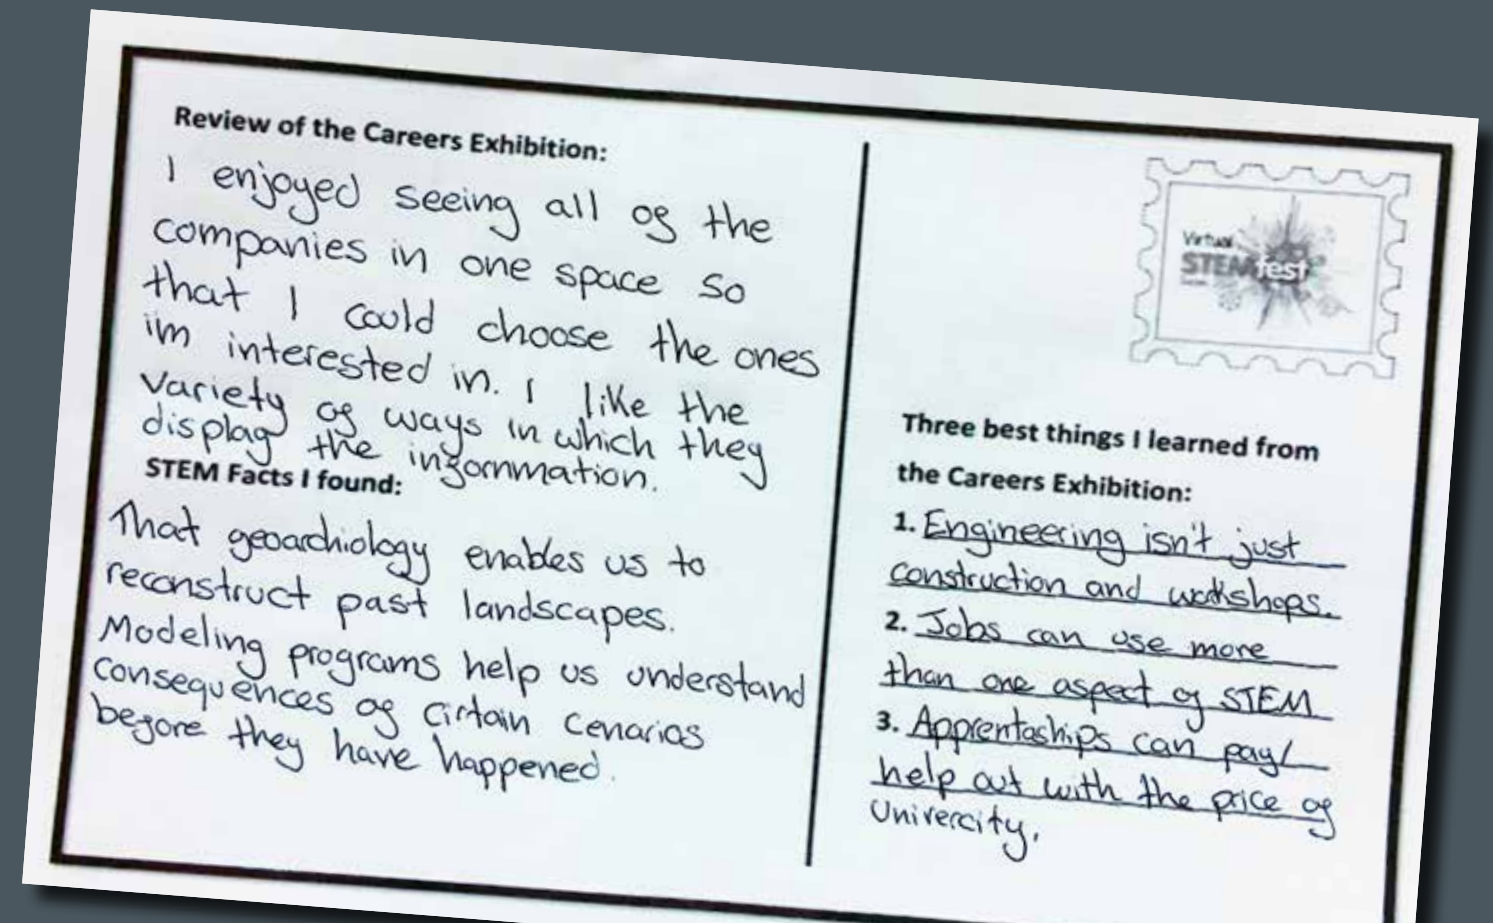 Review of the Careers Exhibition:
I enjoyed seeing all of the
companies in one space so
that I could choose the ones
im interested in. I like the
variety of ways in which they
display the infornmation.
STEM Facts I found:
That geoarchiology enables us to
reconstruct past landscapes.
Modeling programs help us understand
consequences of cirtain cenarios
before they have happened.
Virtual
STEMfest
Three best things I learned from
the Careers Exhibition:
1. Engineering isn't just
construction and workshops.
2. Jobs can use more
than one aspect of STEM
3. Apprentaships can pay/
help out with the price of
Univercity.